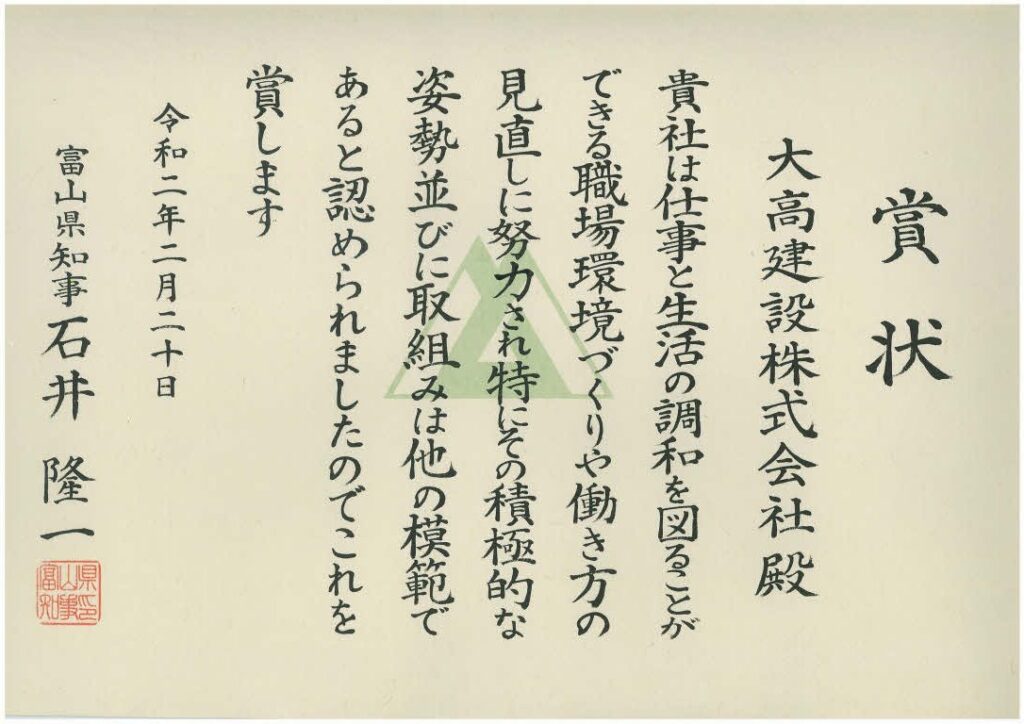 賞状
大高建設株式会社殿
貴社は仕事と生活の調和を図ることが
できる職場環境づくりや働き方の
見直しに努力され特にその積極的な
姿勢並びに取組みは他の模範で
あると認められましたのでこれを
賞します
令和二年二月二十日
富山県知事 石井 隆一
富山県知事印